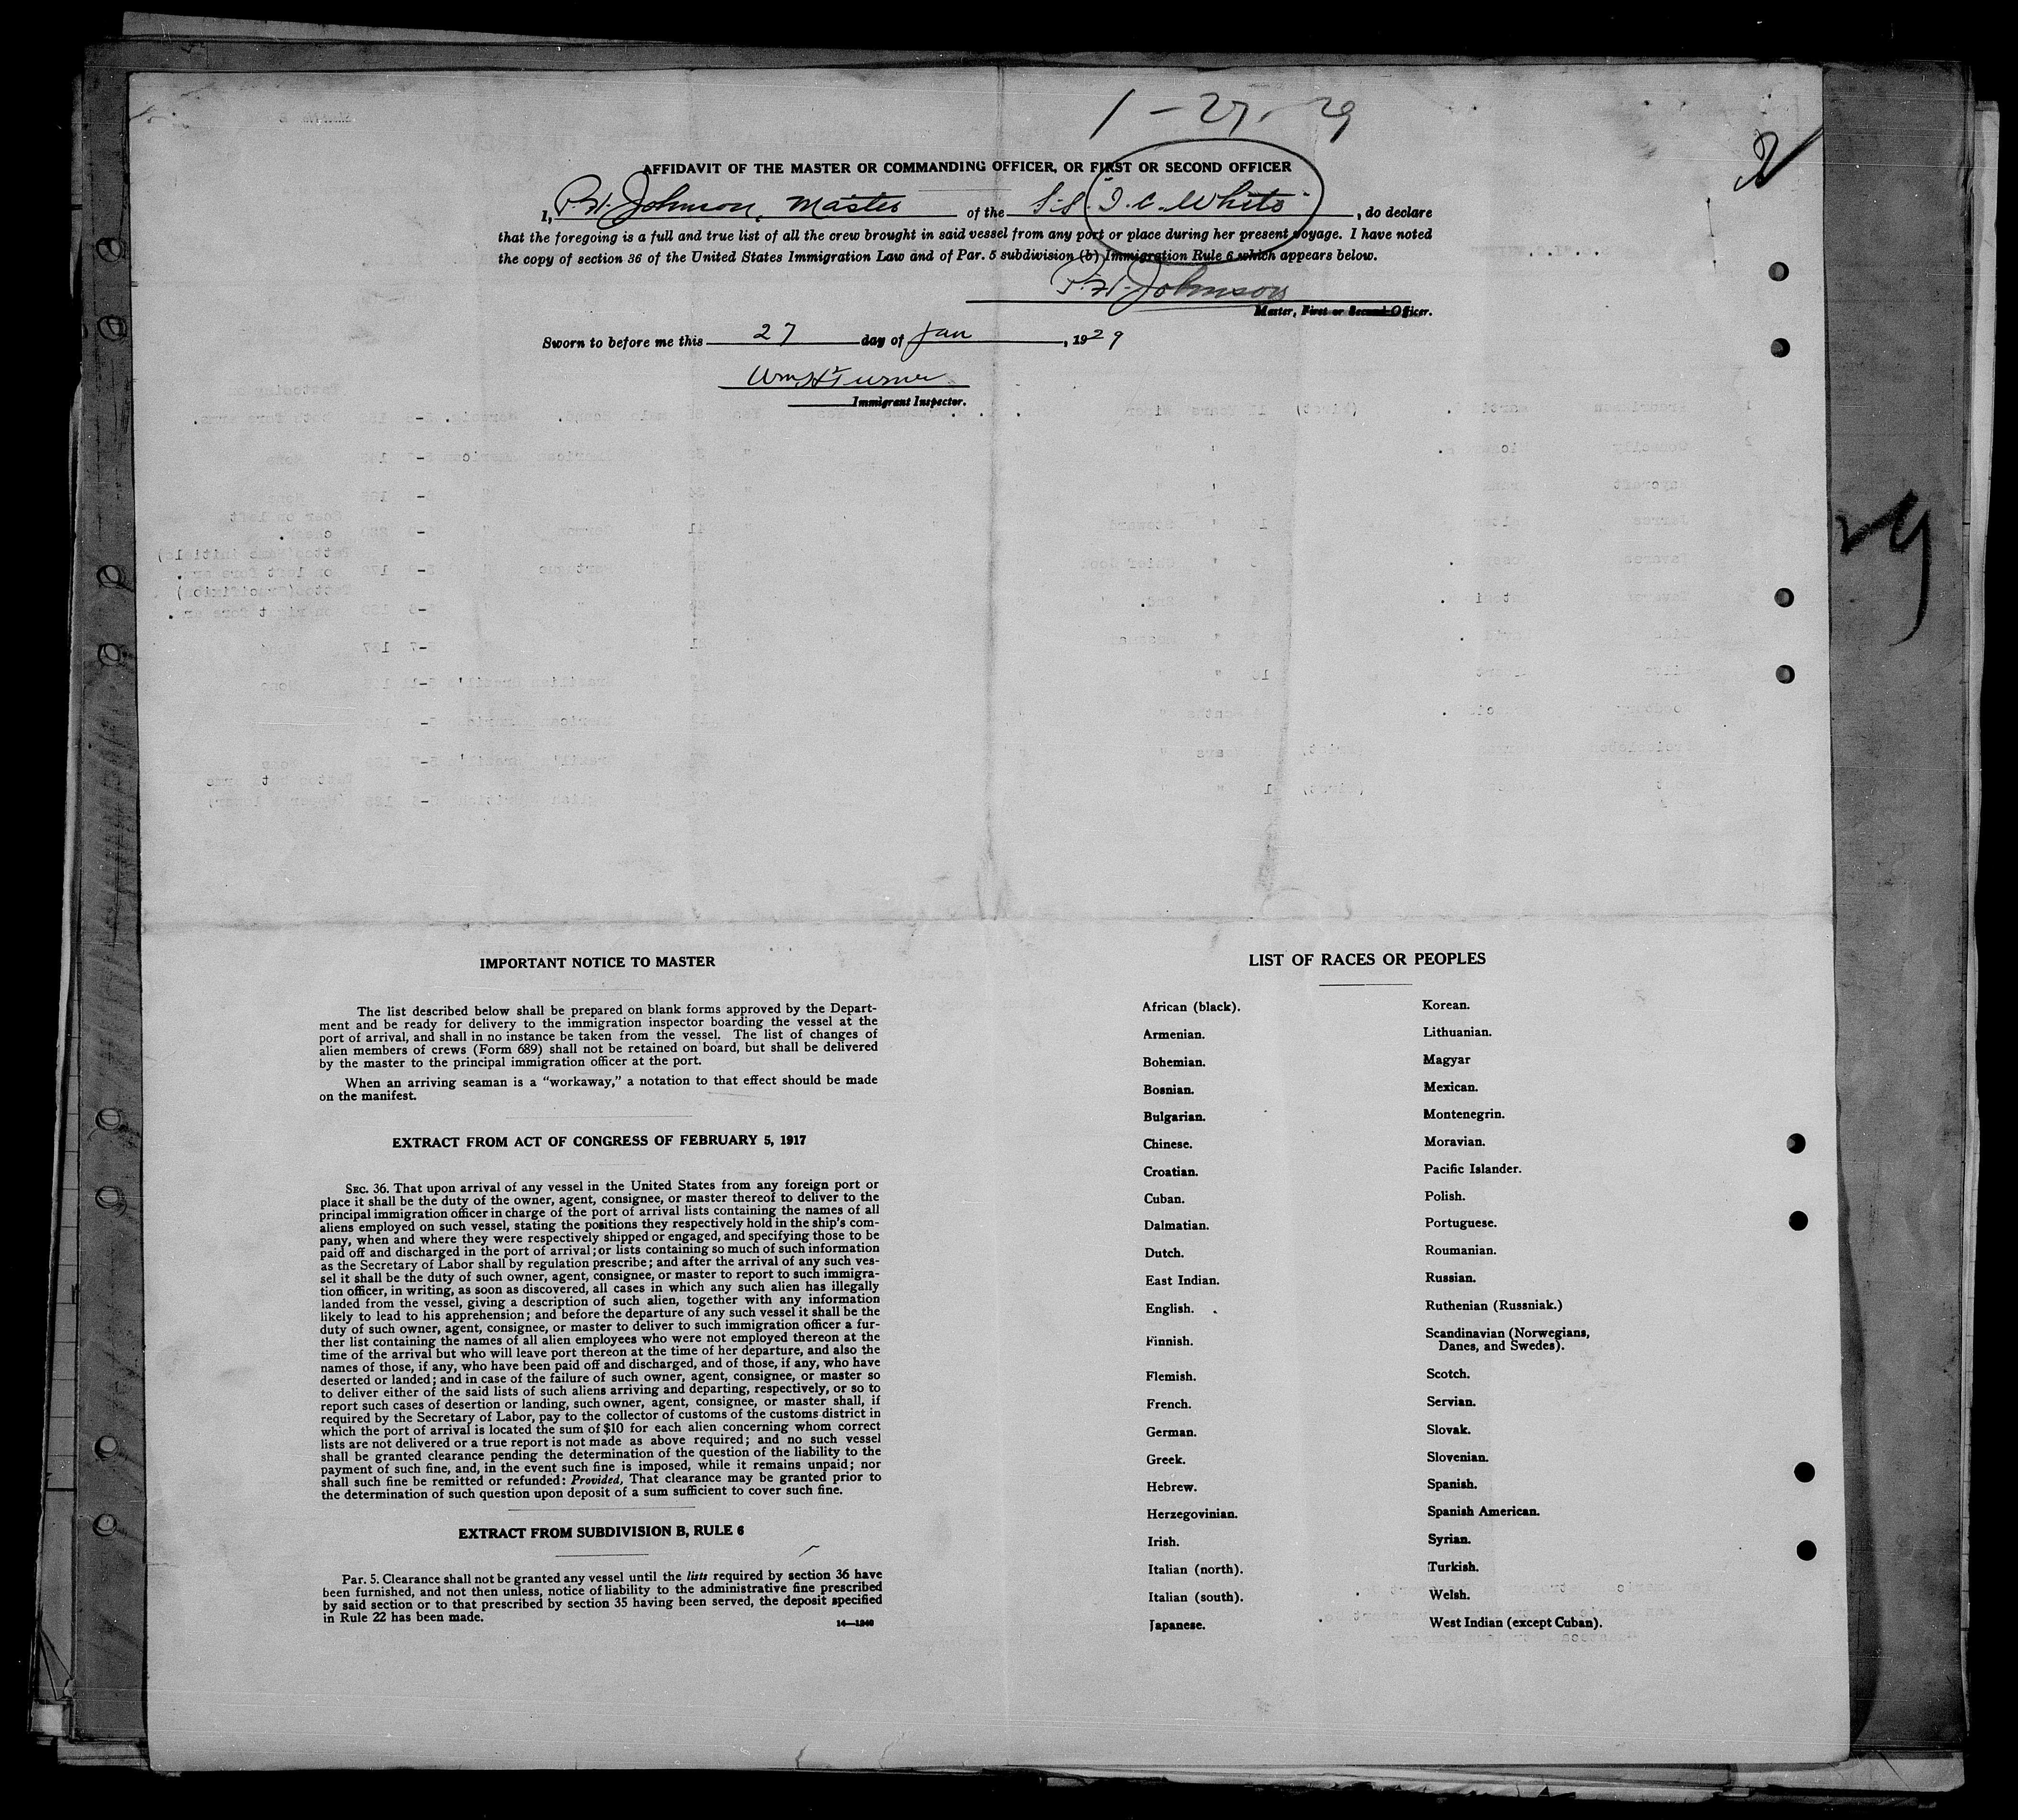 1-27-29
2
AFFIDAVIT OF THE MASTER OR COMMANDING OFFICER, OR FIRST OR SECOND OFFICER
I, P.H. Johnson, Master of the S.S. "I.C. White", do declare
that the foregoing is a full and true list of all the crew brought in said vessel from any port or place during her present voyage. I have noted
the copy of section 36 of the United States Immigration Law and of Par. 5 subdivision (b) Immigration Rule 6 which appears below.
P.H. Johnson
Master, First or Second Officer.
Sworn to before me this 27 day of Jan, 1929
Wm H Turner
Immigrant Inspector.
29
IMPORTANT NOTICE TO MASTER
The list described below shall be prepared on blank forms approved by the Depart-
ment and be ready for delivery to the immigration inspector boarding the vessel at the
port of arrival, and shall in no instance be taken from the vessel. The list of changes of
alien members of crews (Form 689) shall not be retained on board, but shall be delivered
by the master to the principal immigration officer at the port.
When an arriving seaman is a "workaway," a notation to that effect should be made
on the manifest.
EXTRACT FROM ACT OF CONGRESS OF FEBRUARY 5, 1917
SEC. 36. That upon arrival of any vessel in the United States from any foreign port or
place it shall be the duty of the owner, agent, consignee, or master thereof to deliver to the
principal immigration officer in charge of the port of arrival lists containing the names of all
aliens employed on such vessel, stating the positions they respectively hold in the ship's com-
pany, when and where they were respectively shipped or engaged, and specifying those to be
paid off and discharged in the port of arrival; or lists containing so much of such information
as the Secretary of Labor shall by regulation prescribe; and after the arrival of any such ves-
sel it shall be the duty of such owner, agent, consignee, or master to report to such immigra-
tion officer, in writing, as soon as discovered, all cases in which any such alien has illegally
landed from the vessel, giving a description of such alien, together with any information
likely to lead to his apprehension; and before the departure of any such vessel it shall be the
duty of such owner, agent, consignee, or master to deliver to such immigration officer a fur-
ther list containing the names of all alien employees who were not employed thereon at the
time of the arrival but who will leave port thereon at the time of her departure, and also the
names of those, if any, who have been paid off and discharged, and of those, if any, who have
deserted or landed; and in case of the failure of such owner, agent, consignee, or master so
to deliver either of the said lists of such aliens arriving and departing, respectively, or so to
report such cases of desertion or landing, such owner, agent, consignee, or master shall, if
required by the Secretary of Labor, pay to the collector of customs of the customs district in
which the port of arrival is located the sum of $10 for each alien concerning whom correct
lists are not delivered or a true report is not made as above required; and no such vessel
shall be granted clearance pending the determination of the question of the liability to the
payment of such fine, and, in the event such fine is imposed, while it remains unpaid; nor
shall such fine be remitted or refunded: Provided, That clearance may be granted prior to
the determination of such question upon deposit of a sum sufficient to cover such fine.
EXTRACT FROM SUBDIVISION B, RULE 6
Par. 5. Clearance shall not be granted any vessel until the lists required by section 36 have
been furnished, and not then unless, notice of liability to the administrative fine prescribed
by said section or to that prescribed by section 35 having been served, the deposit specified
in Rule 22 has been made.
14—1240
LIST OF RACES OR PEOPLES
African (black).
Armenian.
Bohemian.
Bosnian.
Bulgarian.
Chinese.
Croatian.
Cuban.
Dalmatian.
Dutch.
East Indian.
English.
Finnish.
Flemish.
French.
German.
Greek.
Hebrew.
Herzegovinian.
Irish.
Italian (north).
Italian (south).
Japanese.
Korean.
Lithuanian.
Magyar
Mexican.
Montenegrin.
Moravian.
Pacific Islander.
Polish.
Portuguese.
Roumanian.
Russian.
Ruthenian (Russniak.)
Scandinavian (Norwegians,
Danes, and Swedes).
Scotch.
Servian.
Slovak.
Slovenian.
Spanish.
Spanish American.
Syrian.
Turkish.
Welsh.
West Indian (except Cuban).